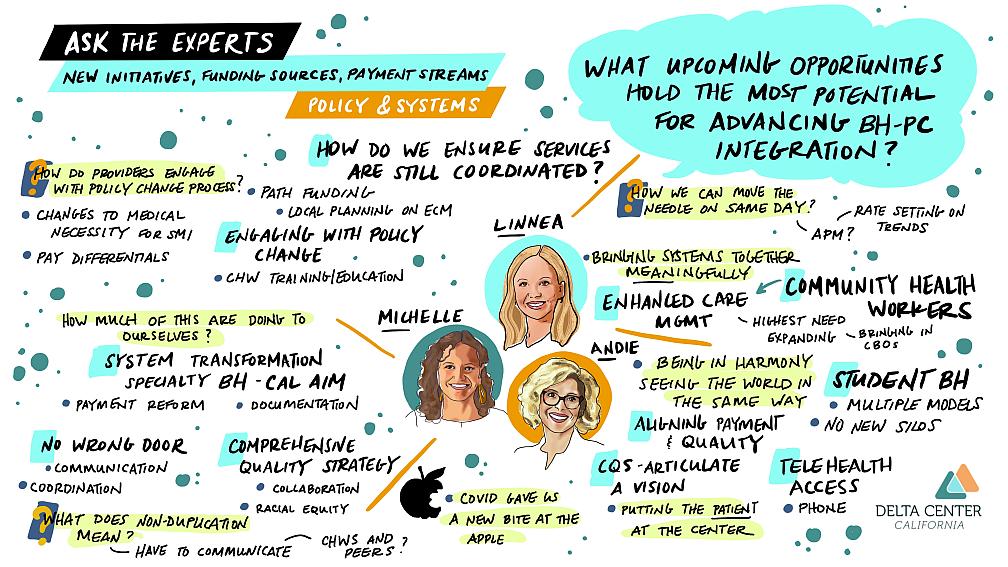 ASK THE EXPERTS
NEW INITIATIVES, FUNDING SOURCES, PAYMENT STREAMS
POLICY & SYSTEMS
WHAT UPCOMING OPPORTUNITIES
HOLD THE MOST POTENTIAL
FOR ADVANCING BH-PC
INTEGRATION?
HOW DO WE ENSURE SERVICES
ARE STILL COORDINATED?
? HOW DO PROVIDERS ENGAGE
WITH POLICY CHANGE PROCESS?
• CHANGES TO MEDICAL
NECESSITY FOR SMI
• PAY DIFFERENTIALS
• PATH FUNDING
• LOCAL PLANNING ON ECM
ENGAGING WITH POLICY
CHANGE
• CHW TRAINING/EDUCATION
LINNEA
? HOW WE CAN MOVE THE
NEEDLE ON SAME DAY?
APM?
RATE SETTING ON
TRENDS
• BRINGING SYSTEMS TOGETHER
MEANINGFULLY
ENHANCED CARE
MGMT
COMMUNITY HEALTH
WORKERS
HIGHEST NEED
EXPANDING
BRINGING IN
CBOS
MICHELLE
HOW MUCH OF THIS ARE DOING TO
OURSELVES?
SYSTEM TRANSFORMATION
SPECIALTY BH - CAL AIM
• PAYMENT REFORM
• DOCUMENTATION
NO WRONG DOOR
• COMMUNICATION
• COORDINATION
COMPREHENSIVE
QUALITY STRATEGY
• COLLABORATION
• RACIAL EQUITY
? WHAT DOES NON-DUPLICATION
MEAN?
HAVE TO COMMUNICATE
CHWS AND
PEERS?
ANDIE
• BEING IN HARMONY
SEEING THE WORLD IN
THE SAME WAY
ALIGNING PAYMENT
& QUALITY
STUDENT BH
• MULTIPLE MODELS
• NO NEW SILOS
CQS - ARTICULATE
A VISION
• PUTTING THE PATIENT
AT THE CENTER
TELEHEALTH
ACCESS
• PHONE
• COVID GAVE US
A NEW BITE AT THE
APPLE
DELTA CENTER
CALIFORNIA